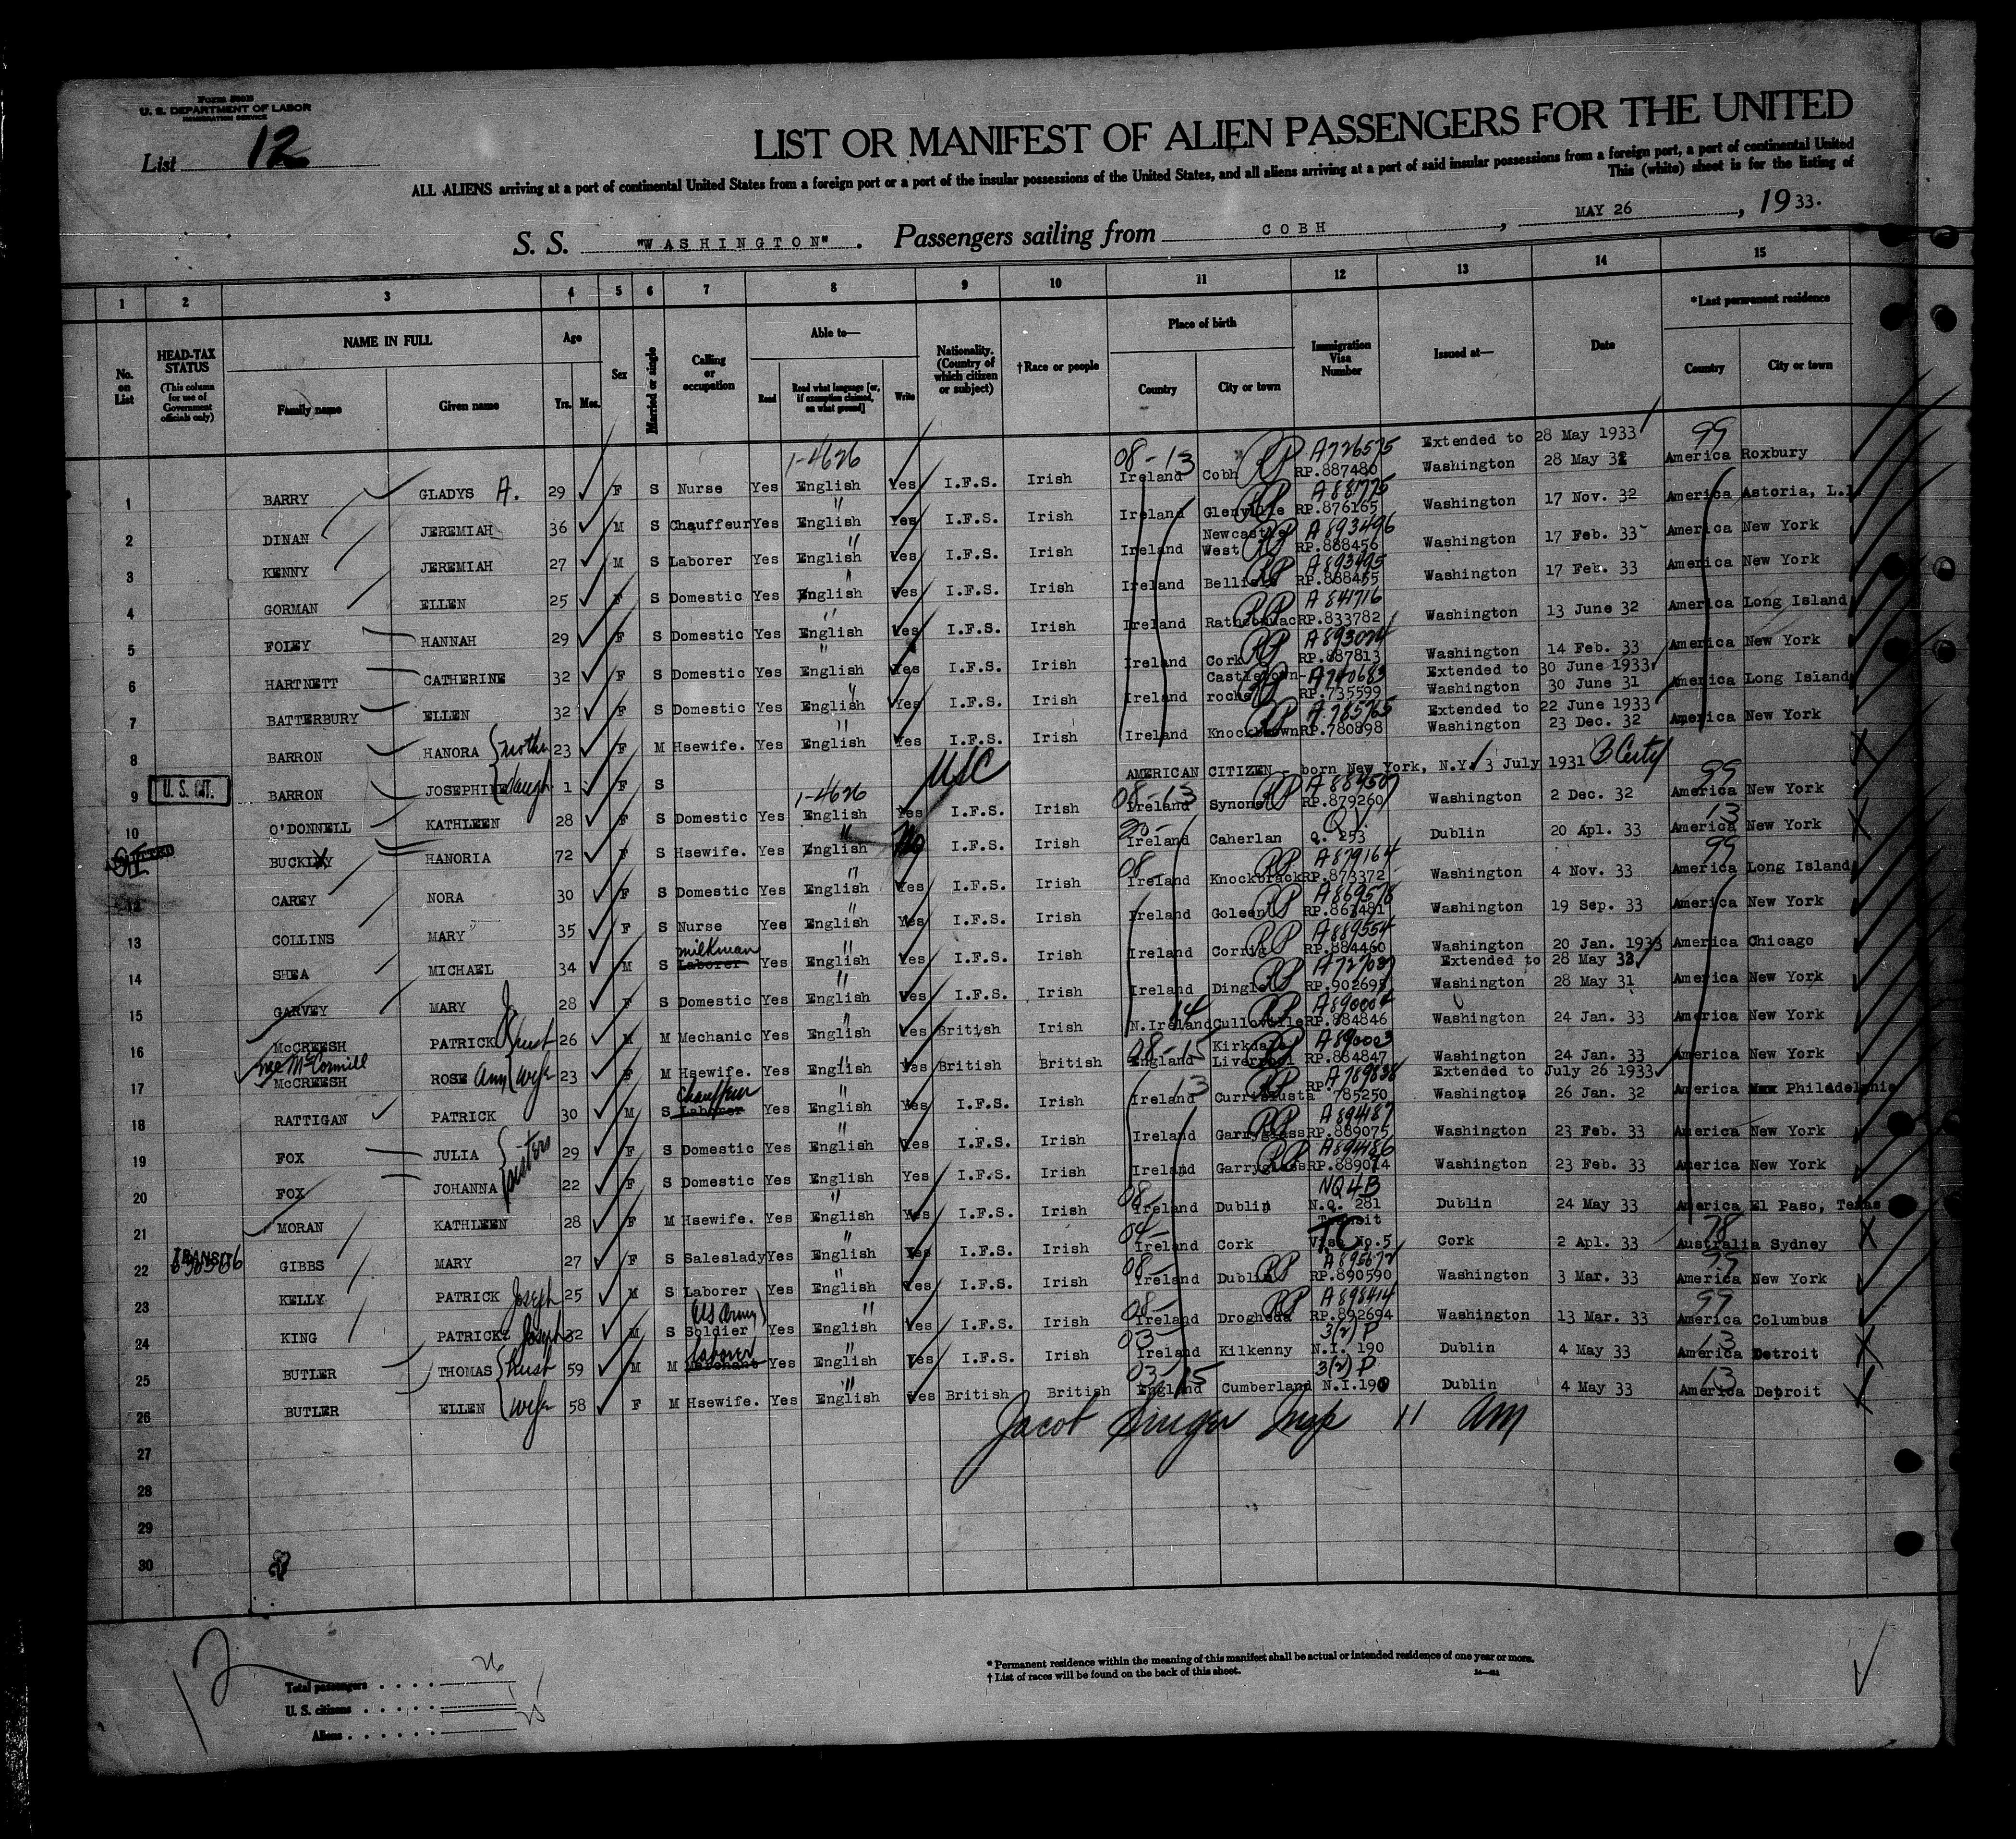 Form 500B
U. S. DEPARTMENT OF LABOR
IMMIGRATION SERVICE
List 12
LIST OR MANIFEST OF ALIEN PASSENGERS FOR THE UNITED
ALL ALIENS arriving at a port of continental United States from a foreign port or a port of the insular possessions of the United States, and all aliens arriving at a port of said insular possessions from a foreign port, a port of continental United
This (white) sheet is for the listing of
S. S. "WASHINGTON". Passengers sailing from COBH, MAY 26, 1933.
1 2 3 4 5 6 7 8 9 10 11 12 13 14 15
No. on List
HEAD-TAX STATUS
(This column for use of Government officials only)
NAME IN FULL
Family name
Given name
Age
Yrs. Mos.
Sex
Married or single
Calling or occupation
Able to—
Read
Read what language [or, if exemption claimed, on what ground]
Write
Nationality. (Country of which citizen or subject)
†Race or people
Place of birth
Country
City or town
Immigration Visa Number
Issued at—
Date
*Last permanent residence
Country
City or town
1-4626 08-13 A726575 Extended to 28 May 1933 99
1 BARRY GLADYS A. 29 F S Nurse Yes English Yes I.F.S. Irish Ireland Cobh RP.887480 Washington 28 May 32 America Roxbury
A881775
2 DINAN JEREMIAH 36 M S Chauffeur Yes English Yes I.F.S. Irish Ireland Glenville RP.876165 Washington 17 Nov. 32 America Astoria, L.I.
A893496
3 KENNY JEREMIAH 27 M S Laborer Yes English Yes I.F.S. Irish Ireland Newcastle West RP.888456 Washington 17 Feb. 33 America New York
A893495
4 GORMAN ELLEN 25 F S Domestic Yes English Yes I.F.S. Irish Ireland RP.888455 Washington 17 Feb. 33 America New York
A841716
5 FOLEY HANNAH 29 F S Domestic Yes English Yes I.F.S. Irish Ireland RP.833782 Washington 13 June 32 America Long Island
A893024
6 HARTNETT CATHERINE 32 F S Domestic Yes English Yes I.F.S. Irish Ireland Cork RP.887813 Washington 14 Feb. 33 America New York
A740683 Extended to 30 June 1933
7 BATTERBURY ELLEN 32 F S Domestic Yes English Yes I.F.S. Irish Ireland Castletown-roche RP.735599 Washington 30 June 31 America Long Island
A785765 Extended to 22 June 1933
8 BARRON HANORA mother 23 M Hsewife. Yes English Yes I.F.S. Irish Ireland Knockbrown RP.780898 Washington 23 Dec. 32 America New York
9 U. S. CIT. BARRON JOSEPHINE daugh 1 F S USC AMERICAN CITIZEN - born New York, N.Y. 3 July 1931
1-4626 08-13 A884507 99
10 O'DONNELL KATHLEEN 28 F S Domestic Yes English Yes I.F.S. Irish Ireland RP.879260 Washington 2 Dec. 32 America New York
20- QV 13
BUCKLEY HANORIA 72 F S Hsewife. Yes English No I.F.S. Irish Ireland Caherlan Q. 253 Dublin 20 Apl. 33 America New York
08- A879164 99
12 CAREY NORA 30 F S Domestic Yes English Yes I.F.S. Irish Ireland Knockbrack RP.873372 Washington 4 Nov. 33 America Long Island
A869578
13 COLLINS MARY 35 F S Nurse Yes English Yes I.F.S. Irish Ireland Goleen RP.863481 Washington 19 Sep. 33 America New York
milkman A889554
14 SHEA MICHAEL 34 M S Laborer Yes English Yes I.F.S. Irish Ireland RP.884460 Washington 20 Jan. 1933 America Chicago
Extended to 28 May 33
15 GARVEY MARY 28 F S Domestic Yes English Yes I.F.S. Irish Ireland Dingle RP.902695 Washington 28 May 31 America New York
14 A890004
16 McCREESH PATRICK J husb 26 M M Mechanic Yes English Yes British Irish N.Ireland Culloville RP.884846 Washington 24 Jan. 33 America New York
nee 08-15 A890003
17 McCREESH ROSE Ann wife 23 F M Hsewife. Yes English Yes British British England Kirkdale Liverpool RP.884847 Washington 24 Jan. 33 America New York
Chauffeur 13 A789838 Extended to July 26 1933
18 RATTIGAN PATRICK 30 M S Laborer Yes English Yes I.F.S. Irish Ireland RP. 785250 Washington 26 Jan. 32 America Philadelphia
A894187
19 FOX JULIA sisters 29 F S Domestic Yes English Yes I.F.S. Irish Ireland Garryglass RP.889075 Washington 23 Feb. 33 America New York
A894186
20 FOX JOHANNA 22 F S Domestic Yes English Yes I.F.S. Irish Ireland Garryglass RP.889074 Washington 23 Feb. 33 America New York
08- NQ4B
21 MORAN KATHLEEN 28 F M Hsewife. Yes English Yes I.F.S. Irish Ireland Dublin N.Q. 281 Dublin 24 May 33 America El Paso, Texas
TRANSIT 04- Transit 78
22 GIBBS MARY 27 F S Saleslady Yes English Yes I.F.S. Irish Ireland Cork Visa No.5 Cork 2 Apl. 33 Australia Sydney
08- A895672 99
23 KELLY PATRICK Joseph 25 M S Laborer Yes English Yes I.F.S. Irish Ireland Dublin RP.890590 Washington 3 Mar. 33 America New York
US Army 08- A898414 99
24 KING PATRICK Joseph 32 M S Soldier Yes English Yes I.F.S. Irish Ireland Drogheda RP.892694 Washington 13 Mar. 33 America Columbus
laborer 03- 3(2) P 13
25 BUTLER THOMAS husb 59 M M Merchant Yes English Yes I.F.S. Irish Ireland Kilkenny N.I. 190 Dublin 4 May 33 America Detroit
03-15 3(2) P 13
26 BUTLER ELLEN wife 58 F M Hsewife. Yes English Yes British British England Cumberland N.I.190 Dublin 4 May 33 America Detroit
Jacob Singer Insp 11 am
27
28
29
30
12
Total passengers 26
U. S. citizens 1
Aliens 25
* Permanent residence within the meaning of this manifest shall be actual or intended residence of one year or more.
† List of races will be found on the back of this sheet.